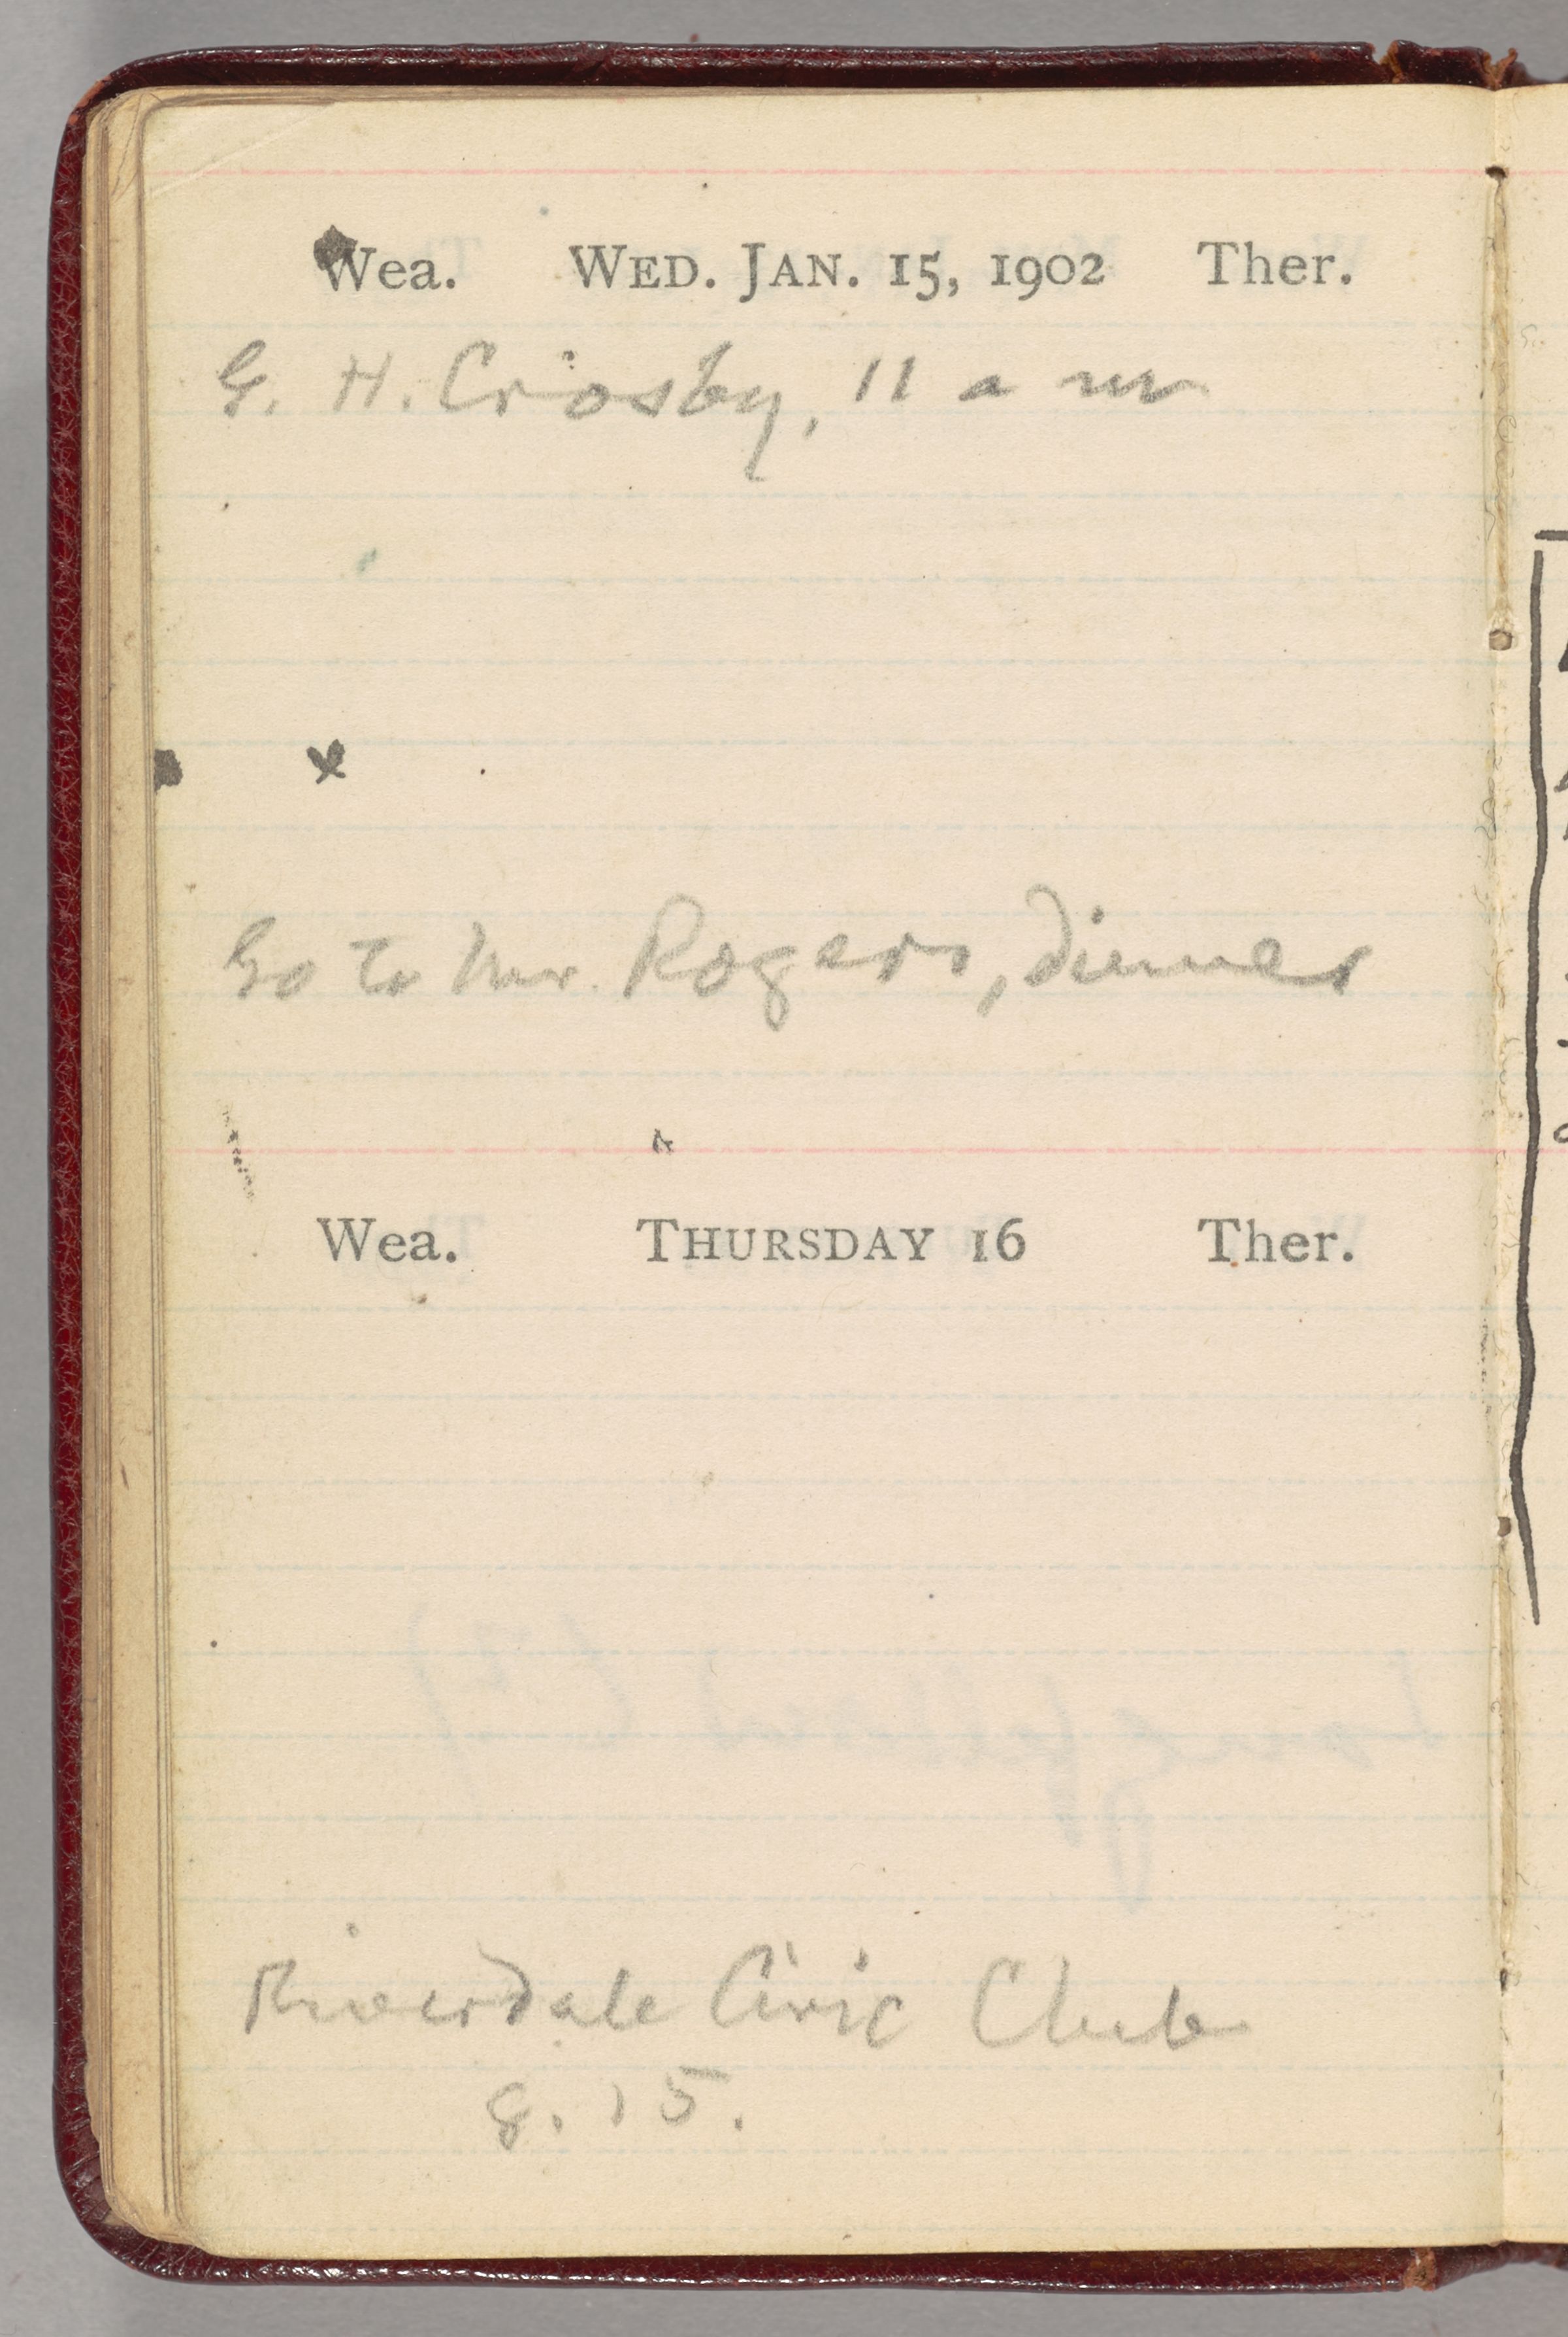 Wea. WED. JAN. 15, 1902 Ther.
G. H. Crosby, 11 a m
Go to Mr. Rogers, dinner
Wea. THURSDAY 16 Ther.
Riverdale Civic Club
8.15.